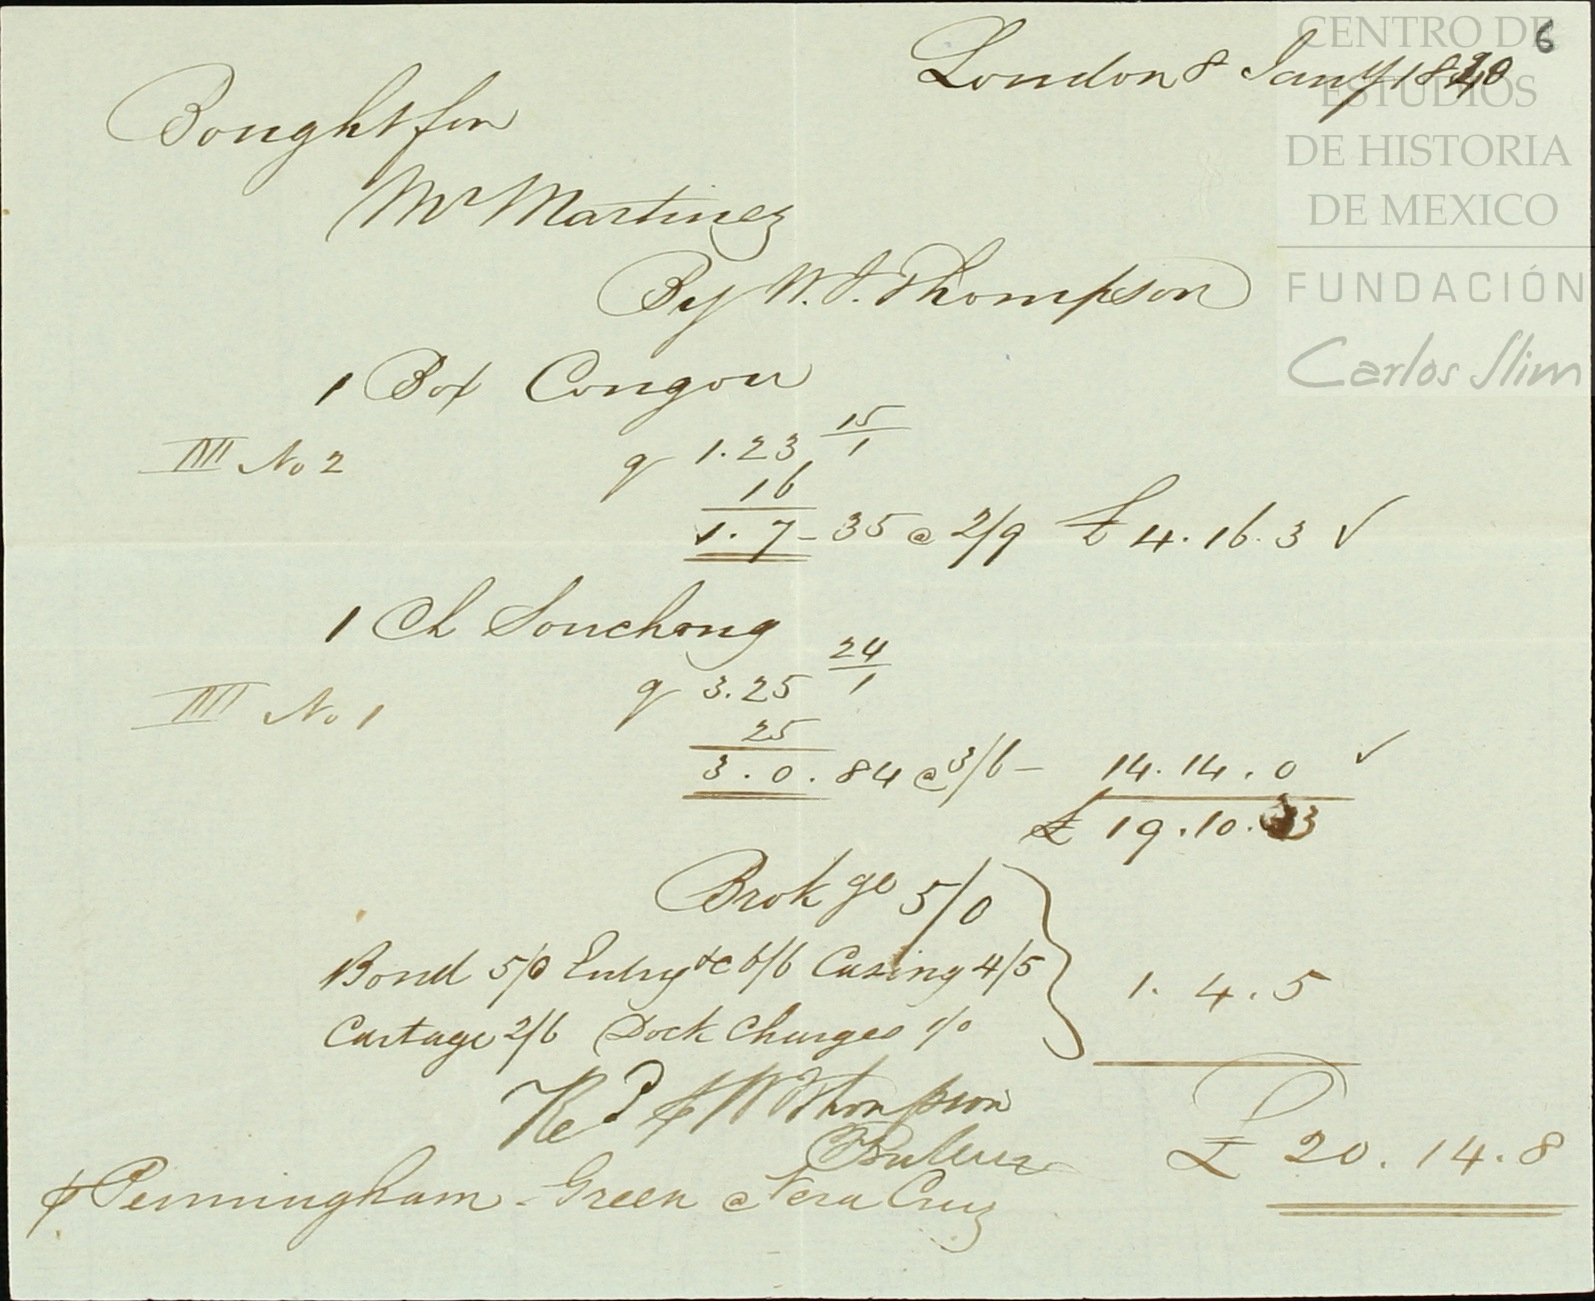 6
London 8 Jany 1840
Bought for
Mr Martinez
By W. J. Thompson
1 Box Congou
15/1
IIII No 2 g 1.23
16
1. 7 - 35 @ 2/9 £ 4. 16. 3 ✓
1 Ch Souchong
24/1
IIII No 1 g 3.25
25
3. 0. 84 @ 3/6 - 14. 14. 0 ✓
£ 19. 10. 3
Brokge 5/0
Bond 5/0 Entry &c 6/6 Casing 4/5
1. 4. 5
Cartage 2/6 Dock Charges 1/0
Thompson
£ 20. 14. 8
Penningham - Green @ Vera Cruz
CENTRO DE
ESTUDIOS
DE HISTORIA
DE MEXICO
FUNDACIÓN
Carlos Slim